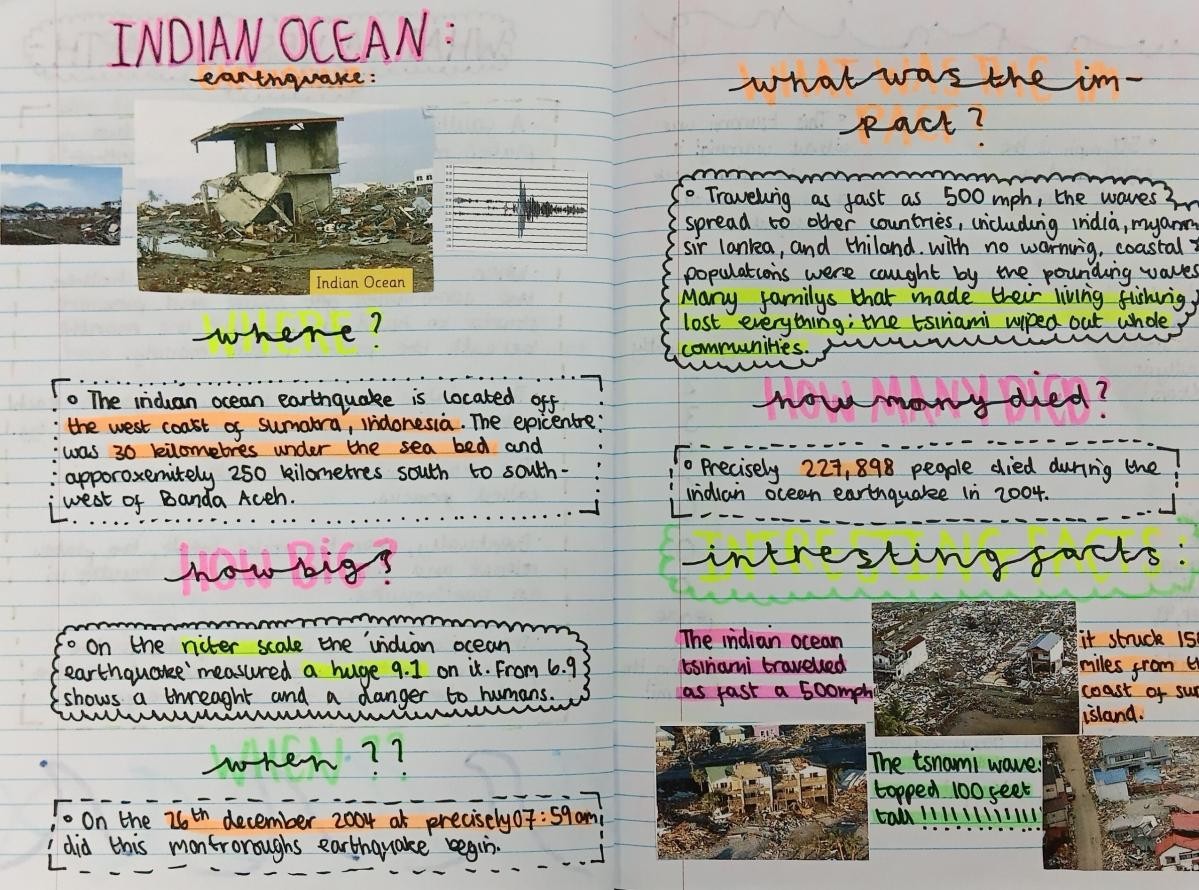 INDIAN OCEAN:
earthquake:
Indian Ocean
where?
• The indian ocean earthquake is located off
the west coast of Sumatra, Indonesia. The epicentre
was 30 kilometres under the sea bed and
apporoxenitely 250 kilometres south to south-
west of Banda Aceh.
how big?
• On the ricter scale the 'indian ocean
earthquake' measured a huge 9.1 on it. From 6.9
shows a threaght and a danger to humans.
when??
• On the 26th december 2004 at precisely 07:59am
did this montroroughs earthquake begin.
what was the im-
pact?
• Traveling as fast as 500 mph, the waves
spread to other countries, including india, myanm
sir lankea, and thiland. with no warning, coastal
populations were caught by the pounding waves
Many familys that made their living fishing
lost everything; the tsinami wiped out whole
communities.
how many died?
• Precisely 227,898 people died during the
indian ocean earthquake in 2004.
intresting facts:
The indian ocean
tsinami travelled
as fast a 500mph
it struck 15
miles from th
coast of su
island.
The tsnami wave
topped 100 feet
tall !!!!!!!!!!!